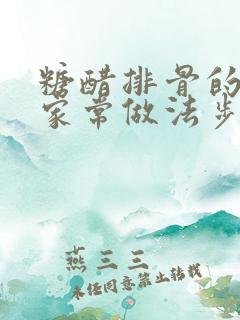 糖醋排骨的
家常做法步
燕三三
未经同意禁止转载